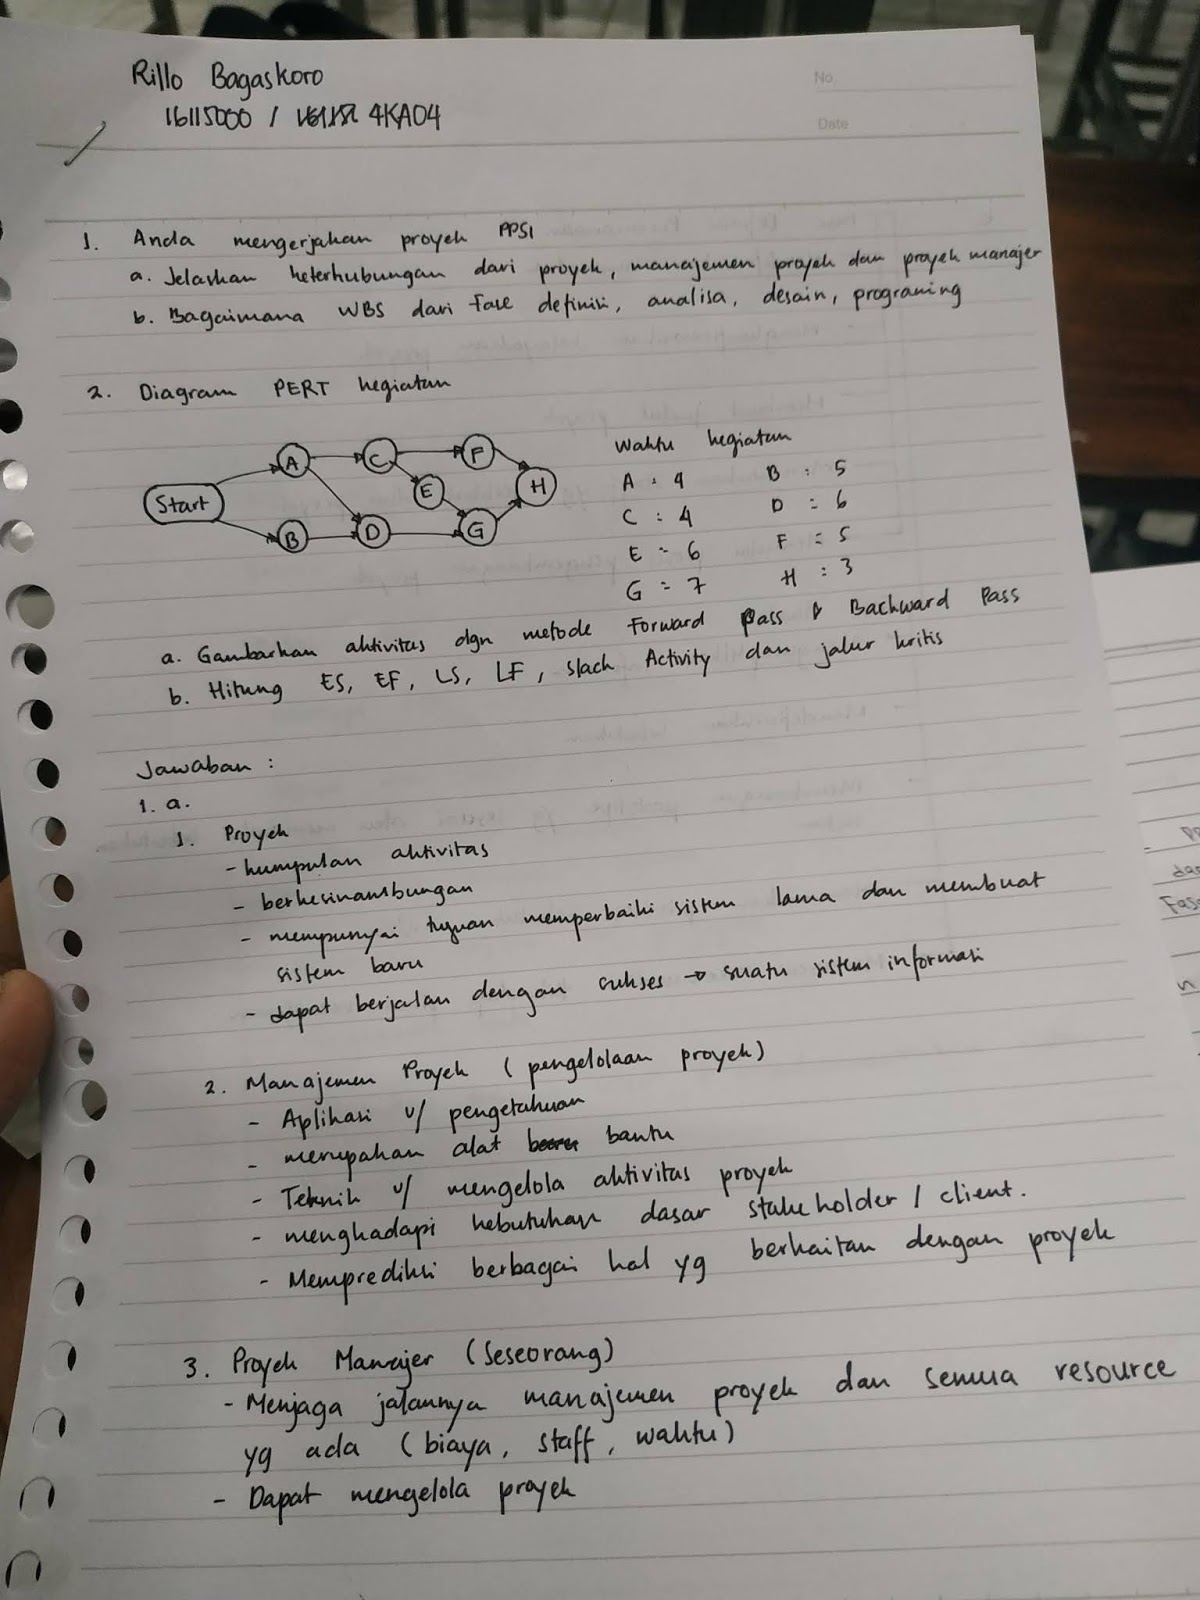 Rillo Bagaskoro
No.
16115000 / 4KA04
Date
1. Anda mengerjakan proyek PPSI
a. Jelaskan keterhubungan dari proyek, manajemen proyek dan proyek manajer
b. Bagaimana WBS dari fase definisi, analisa, desain, programing
2. Diagram PERT kegiatan
Start
A
B
C
D
E
F
G
H
Waktu kegiatan
A : 4 B : 5
C : 4 D = 6
E = 6 F = 5
G = 7 H : 3
a. Gambarkan aktivitas dgn metode Forward Pass & Backward Pass
b. Hitung ES, EF, LS, LF, slack Activity dan jalur kritis
Jawaban :
1. a.
1. Proyek
- kumpulan aktivitas
- berkesinambungan
- mempunyai tujuan memperbaiki sistem lama dan membuat
sistem baru
- dapat berjalan dengan sukses → suatu sistem informasi
2. Manajemen Proyek (pengelolaan proyek)
- Aplikasi u/ pengetahuan
- merupakan alat bantu
- Teknik u/ mengelola aktivitas proyek
- menghadapi kebutuhan dasar stakeholder / client.
- Memprediksi berbagai hal yg berkaitan dengan proyek
3. Proyek Manajer (Seseorang)
- Menjaga jalannya manajemen proyek dan semua resource
yg ada (biaya, staff, waktu)
- Dapat mengelola proyek